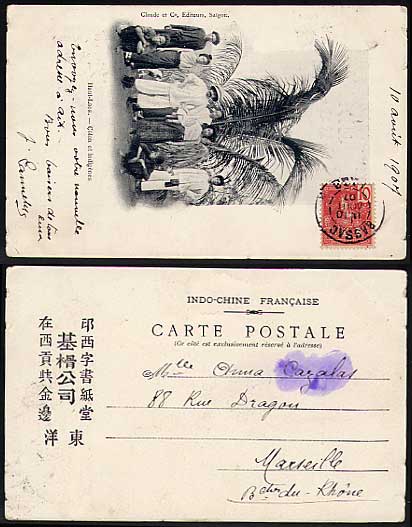 Claude et Cie, Editeurs, Saïgon.
Haut-Laos. — Çâlin et indigènes
10 août 1907
Envoyez-nous votre nouvelle
adresse à Aix.
Bons baisers de tous
BASSAC
10
INDO-CHINE FRANÇAISE
CARTE POSTALE
(Ce côté est exclusivement réservé à l'adresse)
Mlle Anna Cazalas
88 Rue Dragon
Marseille
Bches-du-Rhône
印西字書紙堂
基楈公司
在西貢共金邊
東洋